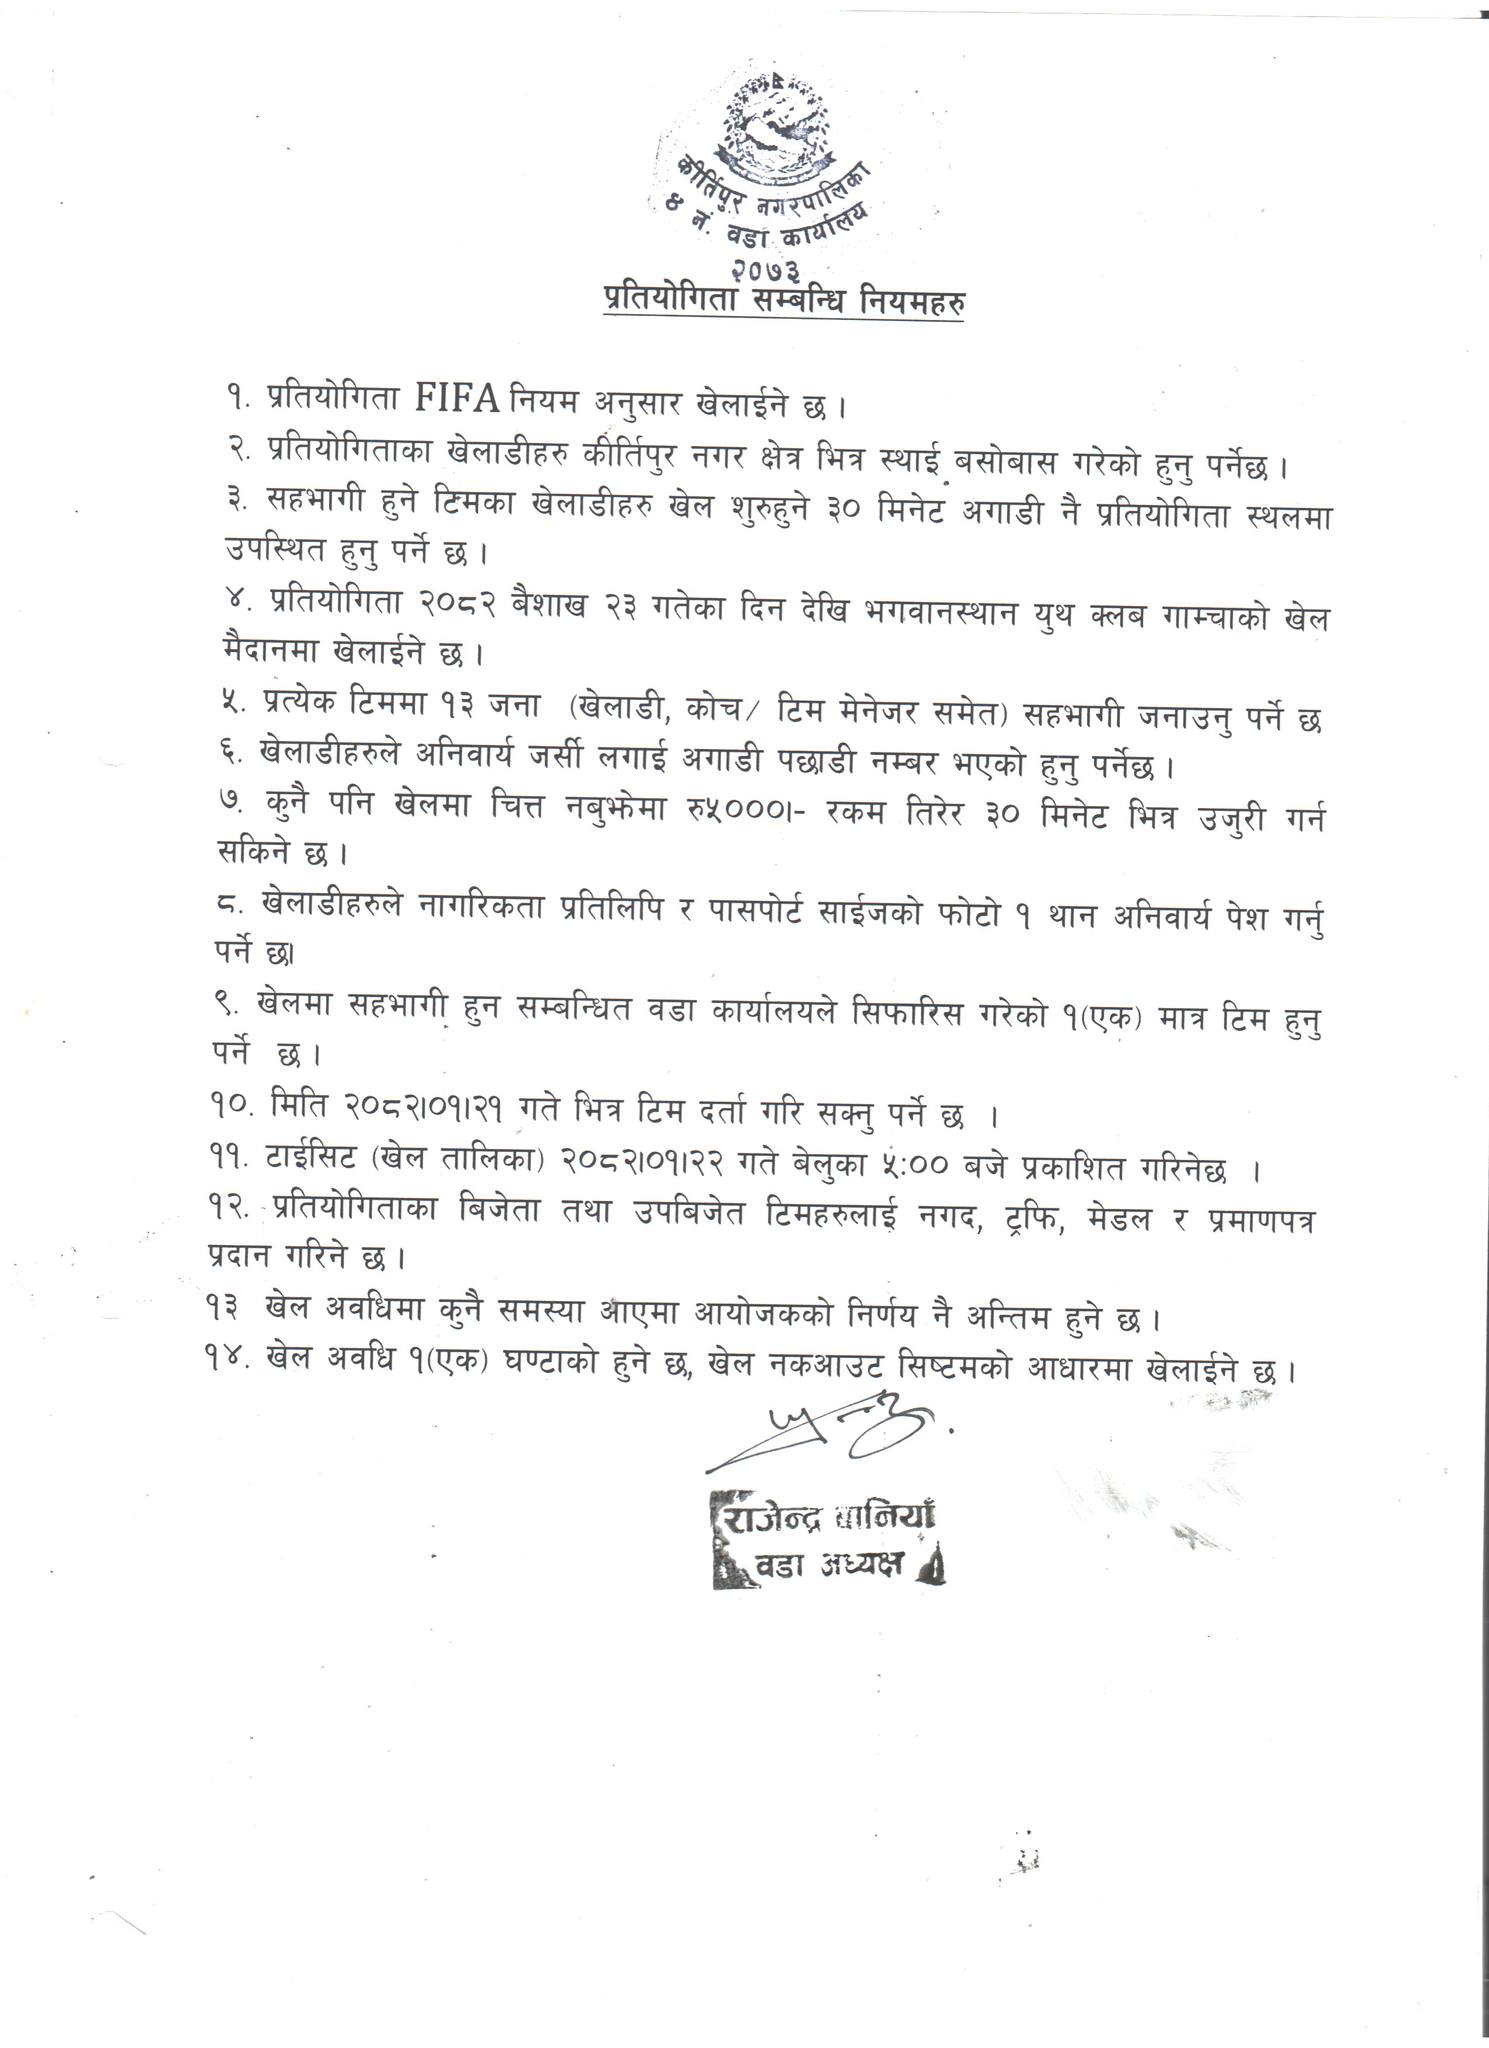 कीर्तिपुर नगरपालिका
४ नं. वडा कार्यालय
२०७३
प्रतियोगिता सम्बन्धि नियमहरु
१. प्रतियोगिता FIFA नियम अनुसार खेलाईने छ ।
२. प्रतियोगिताका खेलाडीहरु कीर्तिपुर नगर क्षेत्र भित्र स्थाई बसोबास गरेको हुनु पर्नेछ ।
३. सहभागी हुने टिमका खेलाडीहरु खेल शुरुहुने ३० मिनेट अगाडी नै प्रतियोगिता स्थलमा
उपस्थित हुनु पर्ने छ ।
४. प्रतियोगिता २०८२ बैशाख २३ गतेका दिन देखि भगवानस्थान युथ क्लब गाम्चाको खेल
मैदानमा खेलाईने छ ।
५. प्रत्येक टिममा १३ जना (खेलाडी, कोच/ टिम मेनेजर समेत) सहभागी जनाउनु पर्ने छ
६. खेलाडीहरुले अनिवार्य जर्सी लगाई अगाडी पछाडी नम्बर भएको हुनु पर्नेछ ।
७. कुनै पनि खेलमा चित्त नबुझेमा रु५०००।- रकम तिरेर ३० मिनेट भित्र उजुरी गर्न
सकिने छ ।
८. खेलाडीहरुले नागरिकता प्रतिलिपि र पासपोर्ट साईजको फोटो १ थान अनिवार्य पेश गर्नु
पर्ने छ।
९. खेलमा सहभागी हुन सम्बन्धित वडा कार्यालयले सिफारिस गरेको १(एक) मात्र टिम हुनु
पर्ने छ ।
१०. मिति २०८२।०१।२१ गते भित्र टिम दर्ता गरि सक्नु पर्ने छ ।
११. टाईसिट (खेल तालिका) २०८२।०१।२२ गते बेलुका ५:०० बजे प्रकाशित गरिनेछ ।
१२. प्रतियोगिताका बिजेता तथा उपबिजेत टिमहरुलाई नगद, ट्रफि, मेडल र प्रमाणपत्र
प्रदान गरिने छ ।
१३ खेल अवधिमा कुनै समस्या आएमा आयोजकको निर्णय नै अन्तिम हुने छ ।
१४. खेल अवधि १(एक) घण्टाको हुने छ, खेल नकआउट सिष्टमको आधारमा खेलाईने छ ।
राजेन्द्र
वडा अध्यक्ष